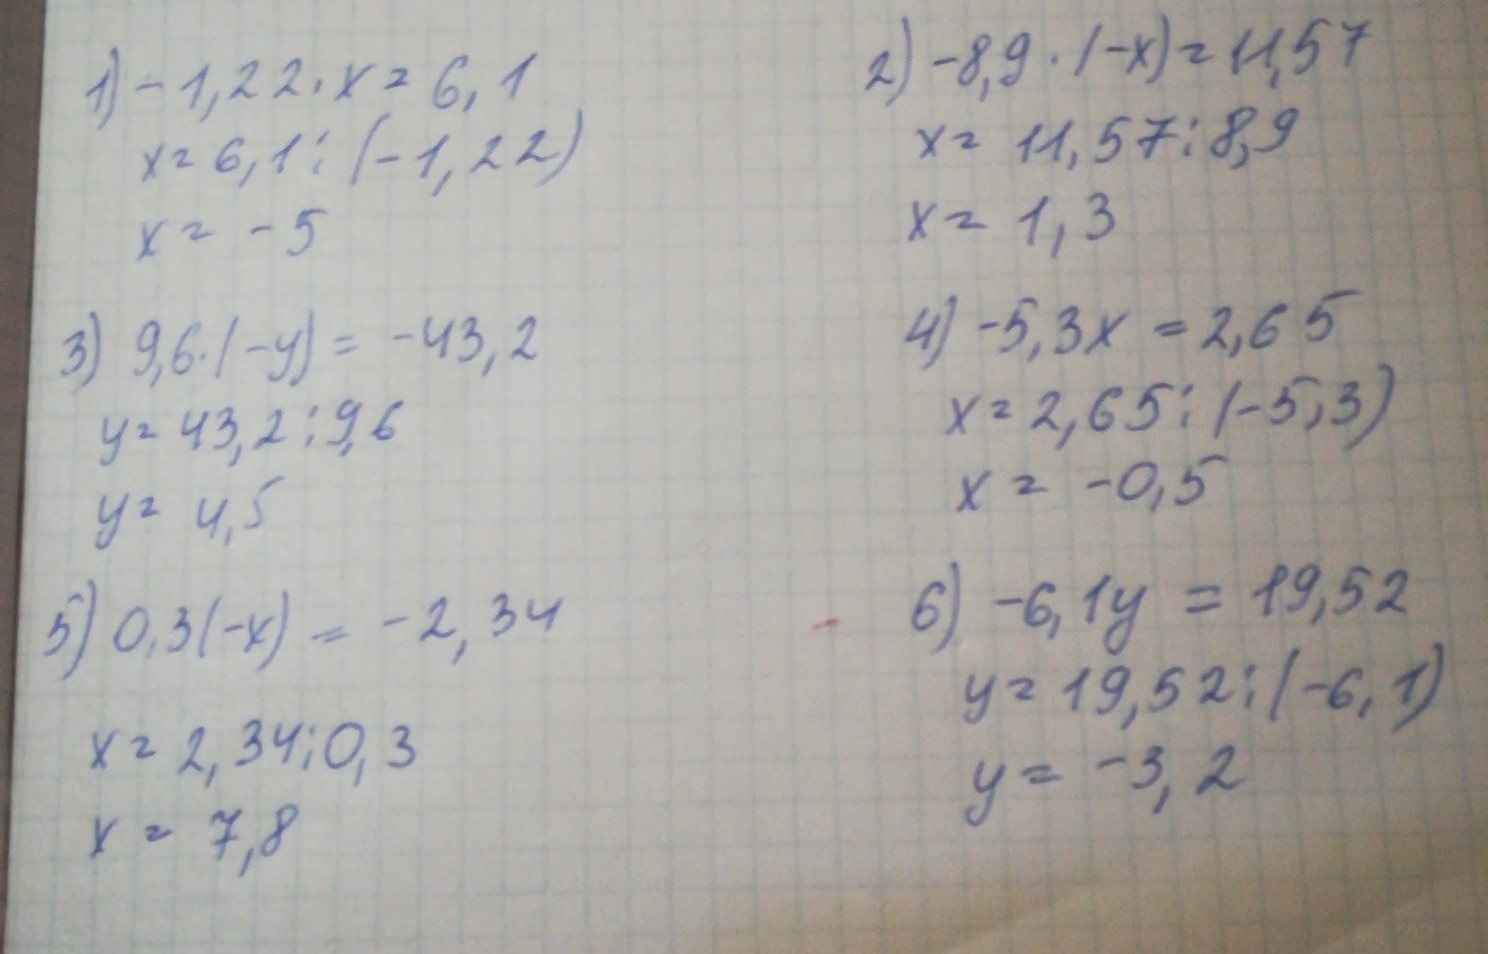 1) -1,22 · x = 6,1
x = 6,1 : (-1,22)
x = -5
2) -8,9 · (-x) = 11,57
x = 11,57 : 8,9
x = 1,3
3) 9,6 · (-y) = -43,2
y = 43,2 : 9,6
y = 4,5
4) -5,3x = 2,65
x = 2,65 : (-5,3)
x = -0,5
5) 0,3(-x) = -2,34
x = 2,34 : 0,3
x = 7,8
6) -6,1y = 19,52
y = 19,52 : (-6,1)
y = -3,2